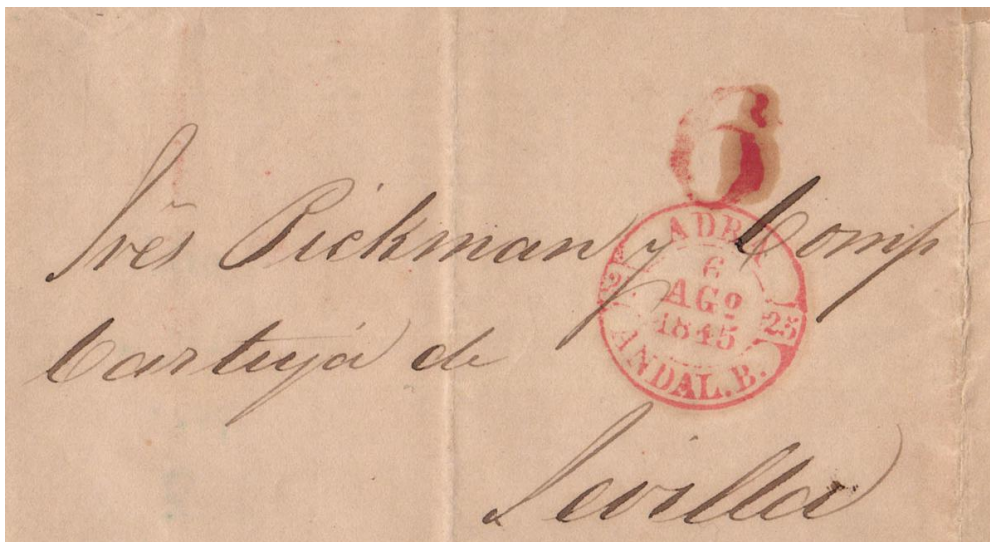 6
Sres Pickman y Comp
ADRA
6
AGº
1845
25
ANDAL.B.
Cartuja de
Sevilla